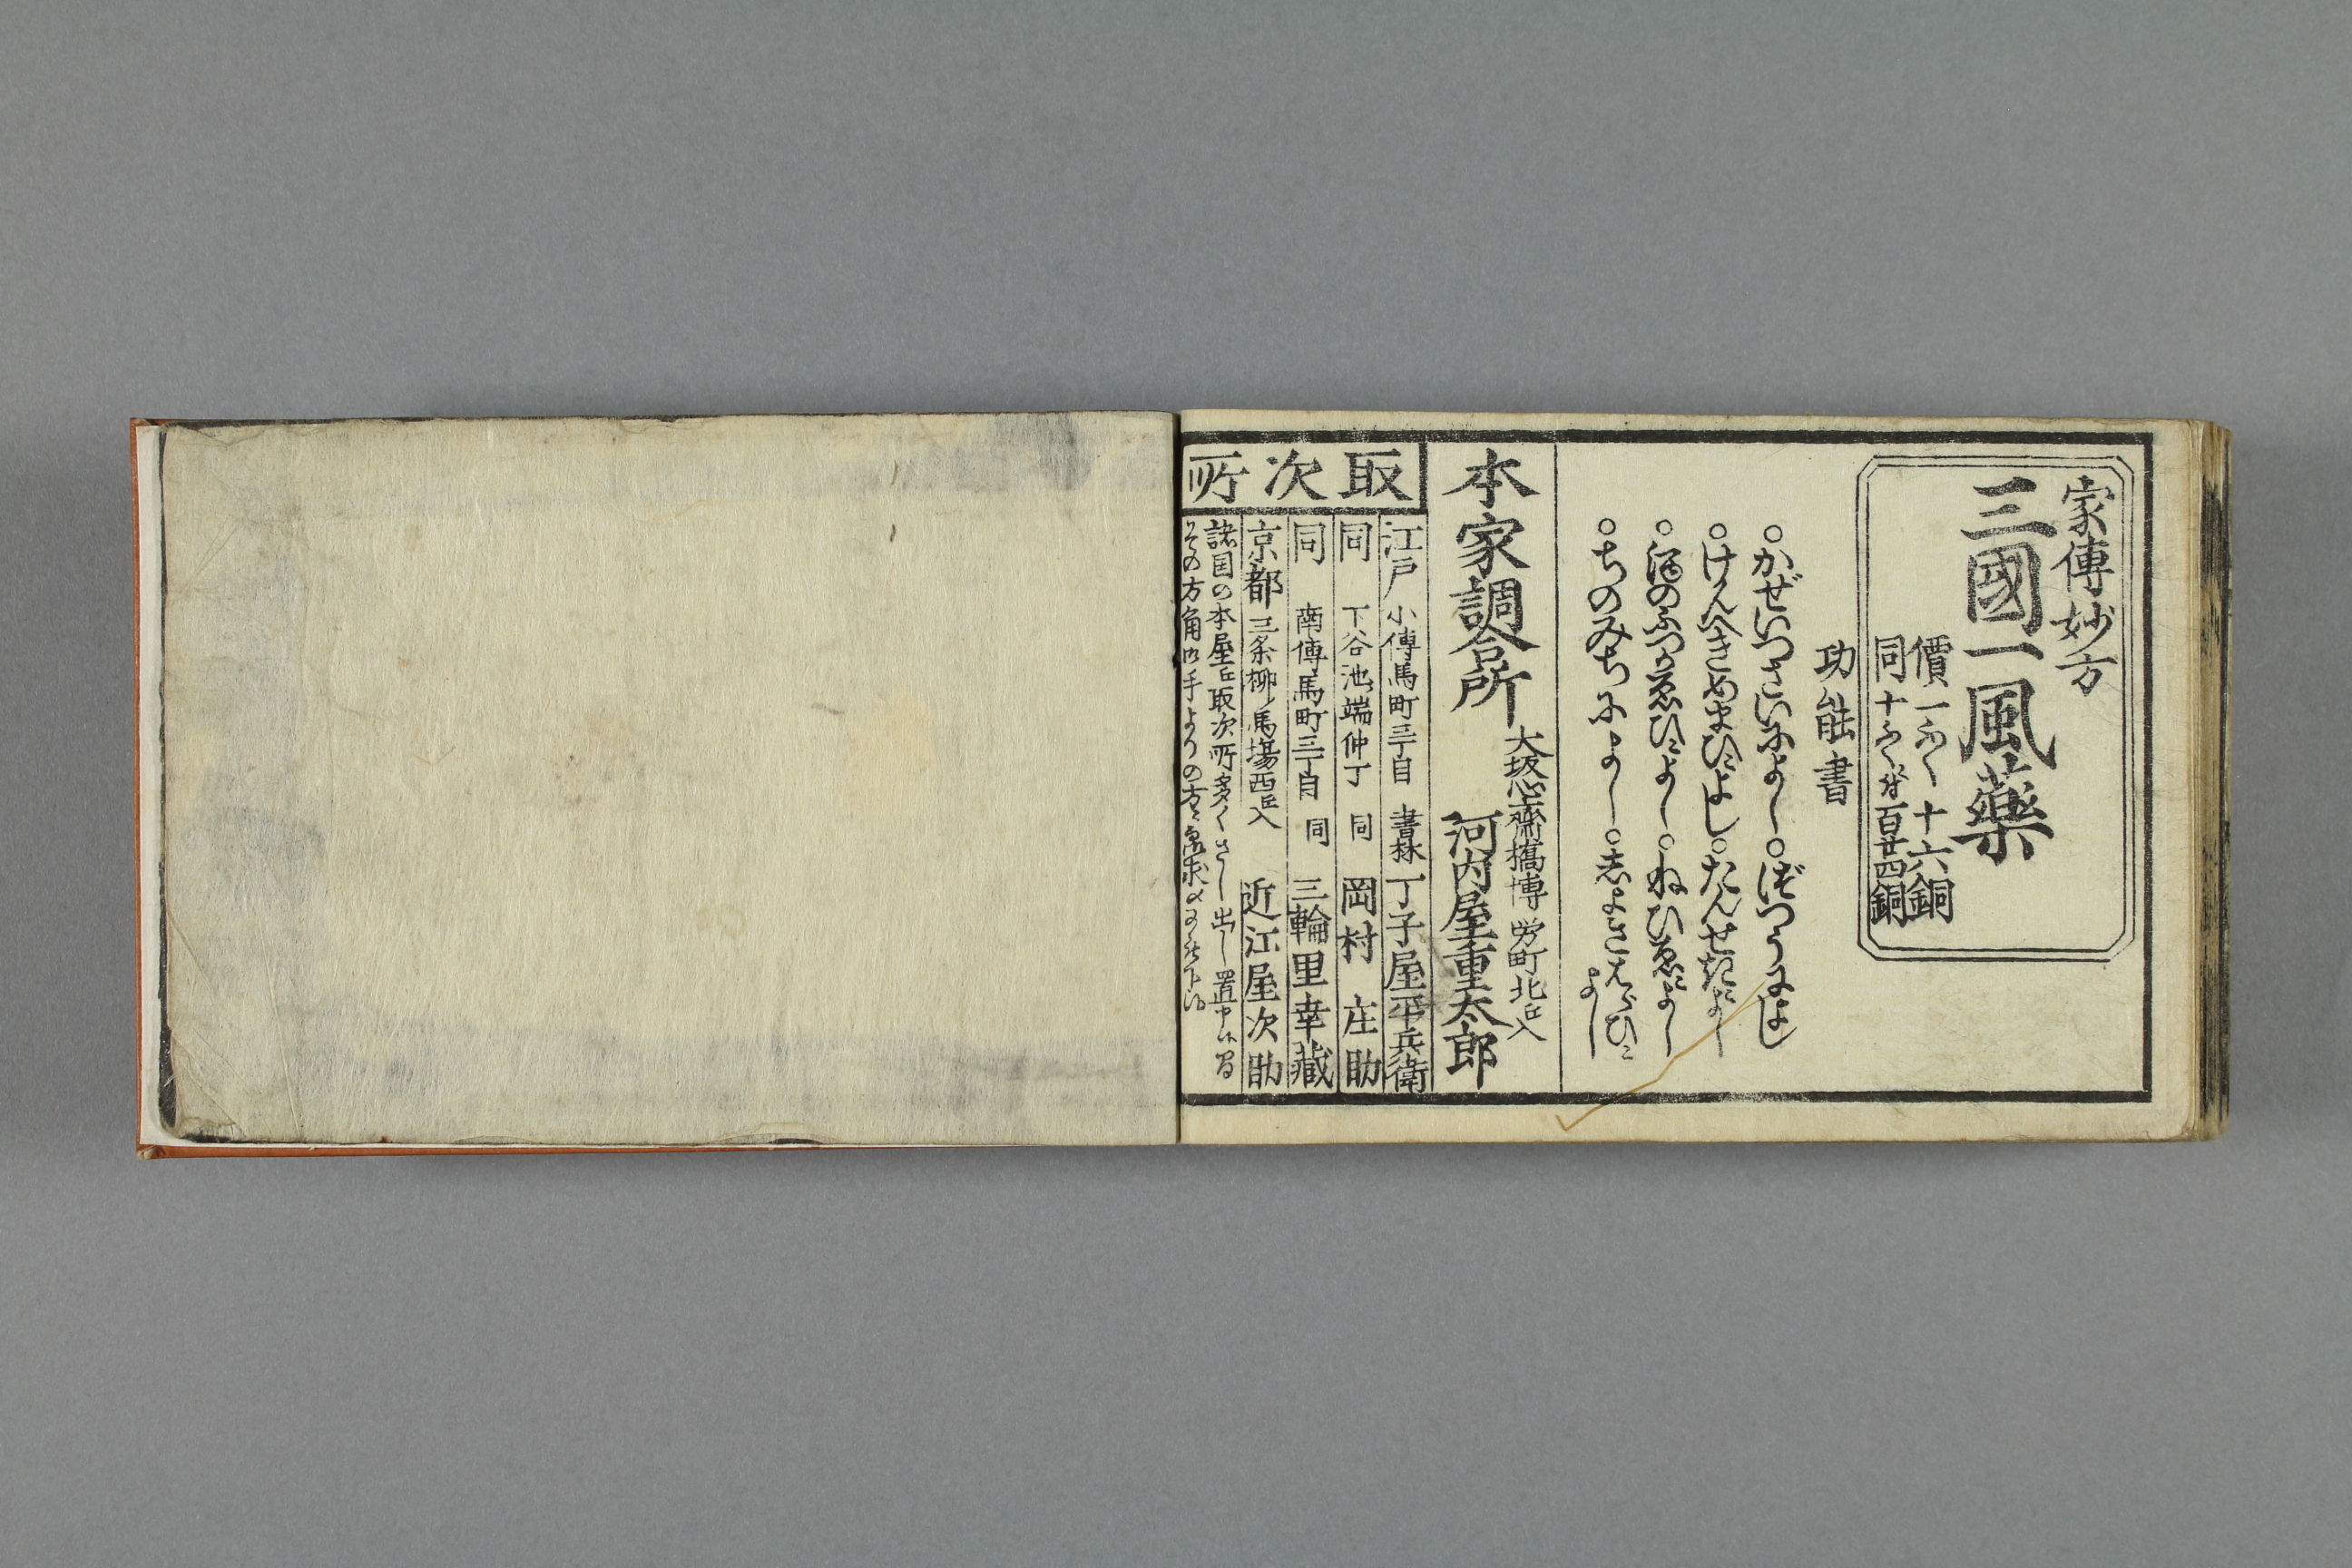 家傳妙方
三國一風藥
價一ふく十六銅
同十ふく分百廿四銅
功能書
○かぜいつさいによし○づつうによし
○けんへきめまひによし○たんせきによし
○酒のふつかゑひによし○ねびゑによし
○ちのみちによし○志よきはらひによし
本家調合所
大坂心斎橋博労町北ヘ入
河内屋重太郎
取次所
江戸 小傳馬町三丁目 書林 丁子屋平兵衛
同 下谷池端仲丁 同 岡村庄助
同 南傳馬町三丁目 同 三輪里幸藏
京都 三条柳馬場西ヘ入 近江屋次助
諸国の本屋ヘ取次所多くさし出し置申候間
その方角御手よりの方にて御求め可被下候